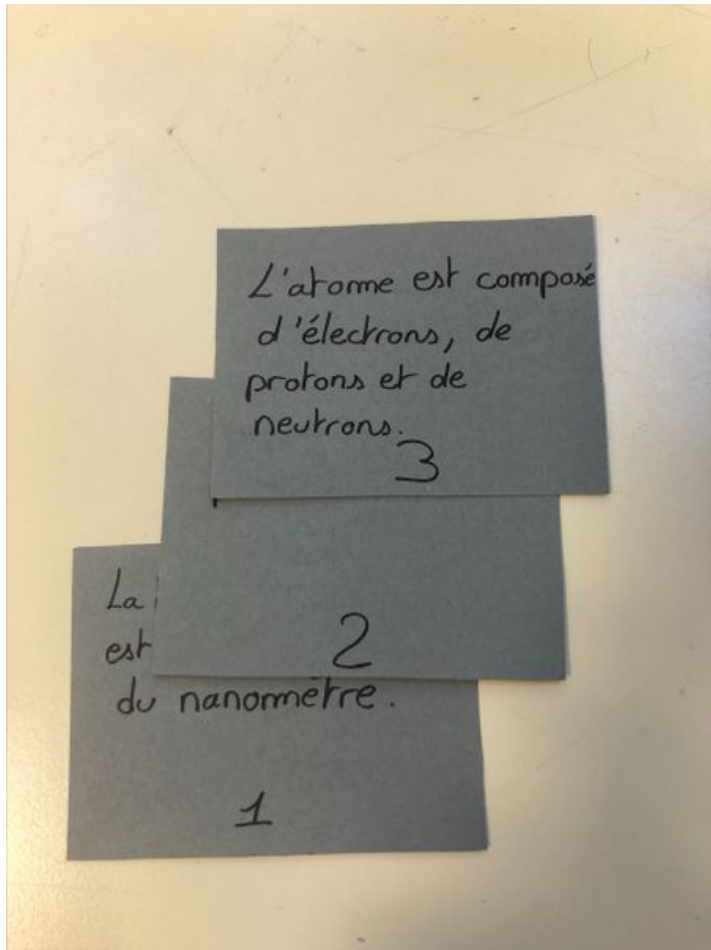 L'atome est composé
d'électrons, de
protons et de
neutrons.
3
2
La
est
du nanomètre.
1